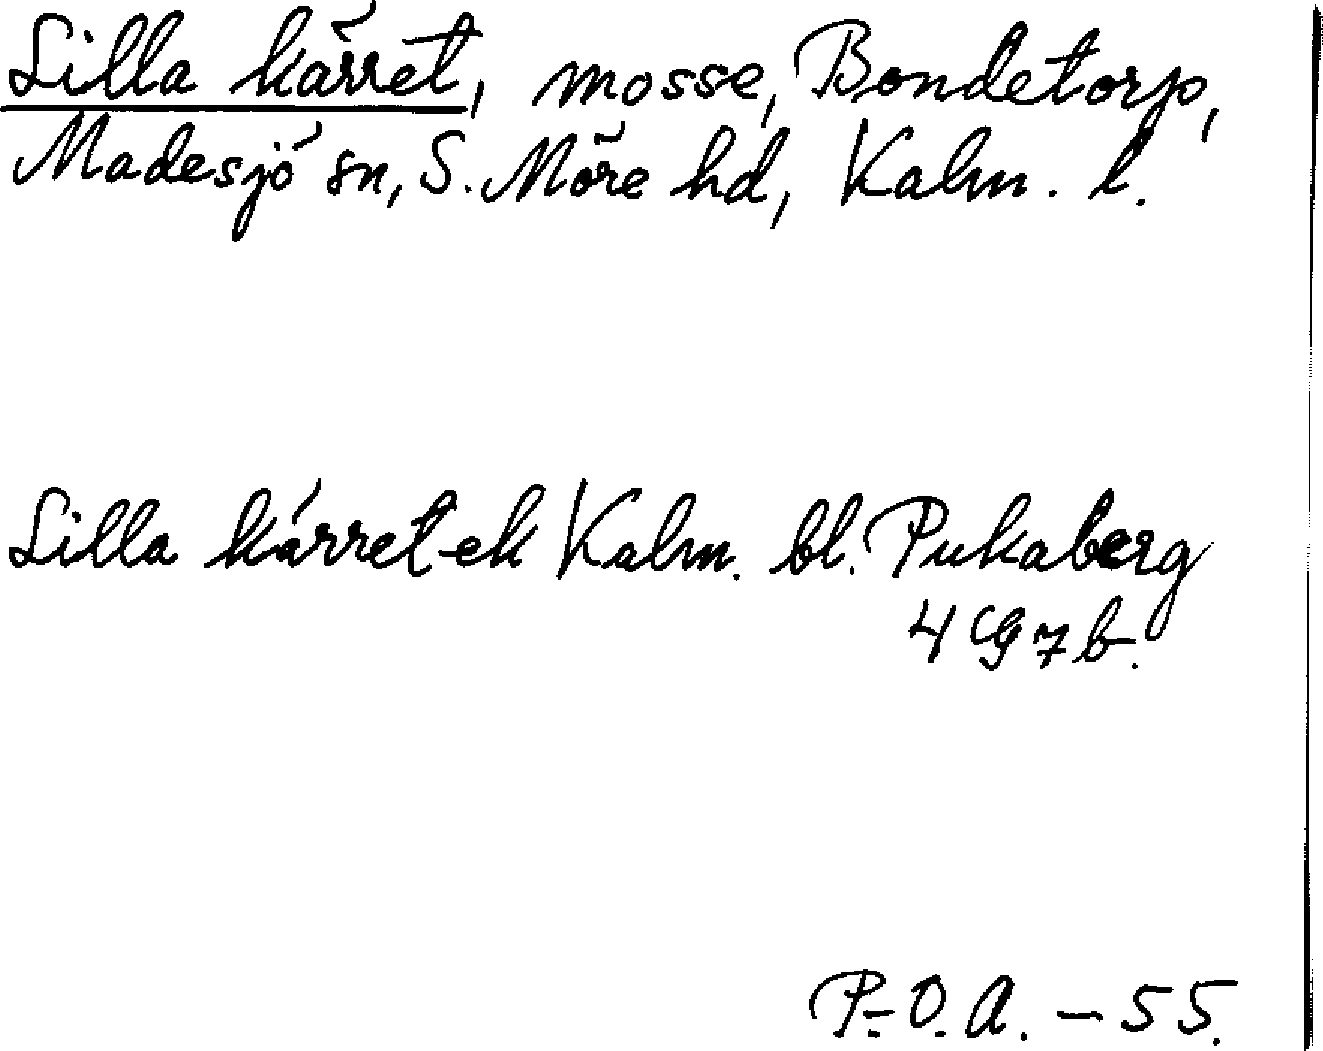 Lilla kärret, mosse, Bondetorp,
Madesjö sn, S. Möre hd, Kalm. l.
Lilla kärret ek Kalm. bl. Pukaberg
4 G 7 b.
P.-O. A. - 55.